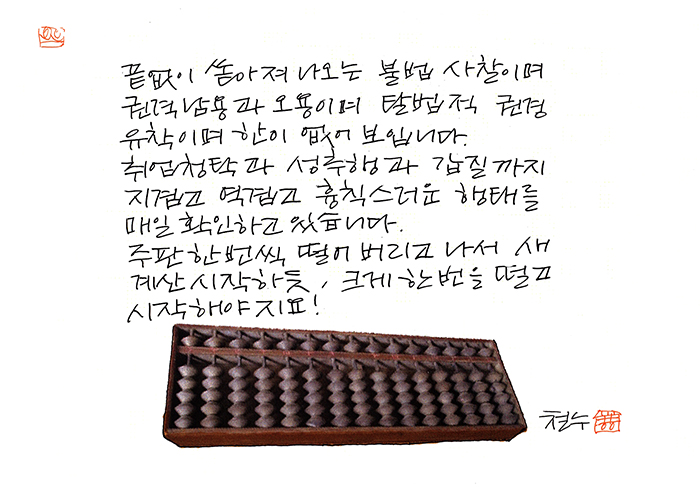 끝없이 쏟아져 나오는 불법 사찰이며
권력남용과 오용이며 탈법적 권경
유착이며 한이 없어 보입니다.
취업청탁과 성추행과 갑질까지
지겹고 역겹고 흉칙스러운 행태를
매일 확인하고 있습니다.
주판 한번씩 떨어 버리고 나서 새
계산 시작하듯, 크게 한번을 떨고
시작해야지요!
철수